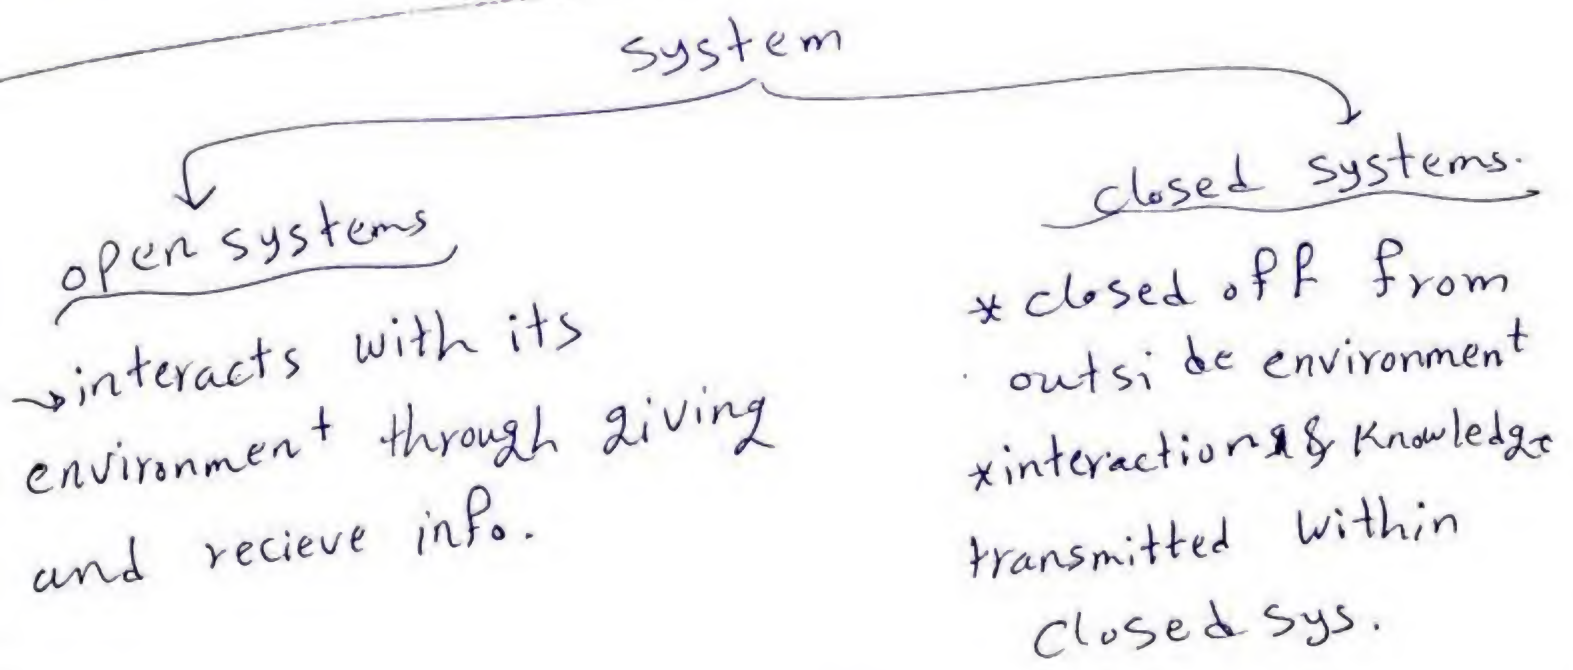 system
open systems
→interacts with its
environment through giving
and recieve info.
closed systems.
* closed off from
outside environment
* interactions & knowledge
transmitted within
closed sys.